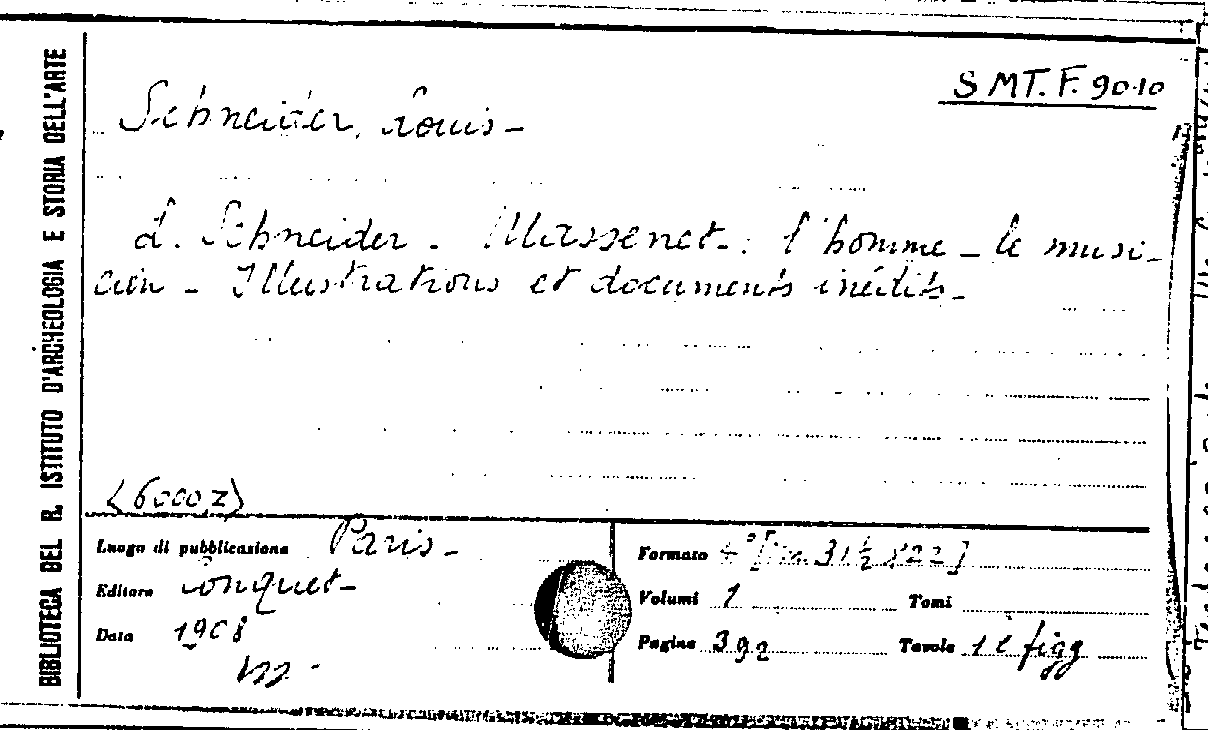 BIBLIOTECA DEL R. ISTITUTO D'ARCHEOLOGIA E STORIA DELL'ARTE
S MT. F. 90.10
Schneider, Louis -
L. Schneider - Massenet - : l'homme - le musi-
cien - Illustrations et documents inédits -
(6000,z)
Luogo di pubblicazione Paris -
Editore Conquet -
Data 1908
Formato 4° [cm. 31½ x 22]
Volumi 1 Tomi
Pagine 392 Tavole 1 e figg